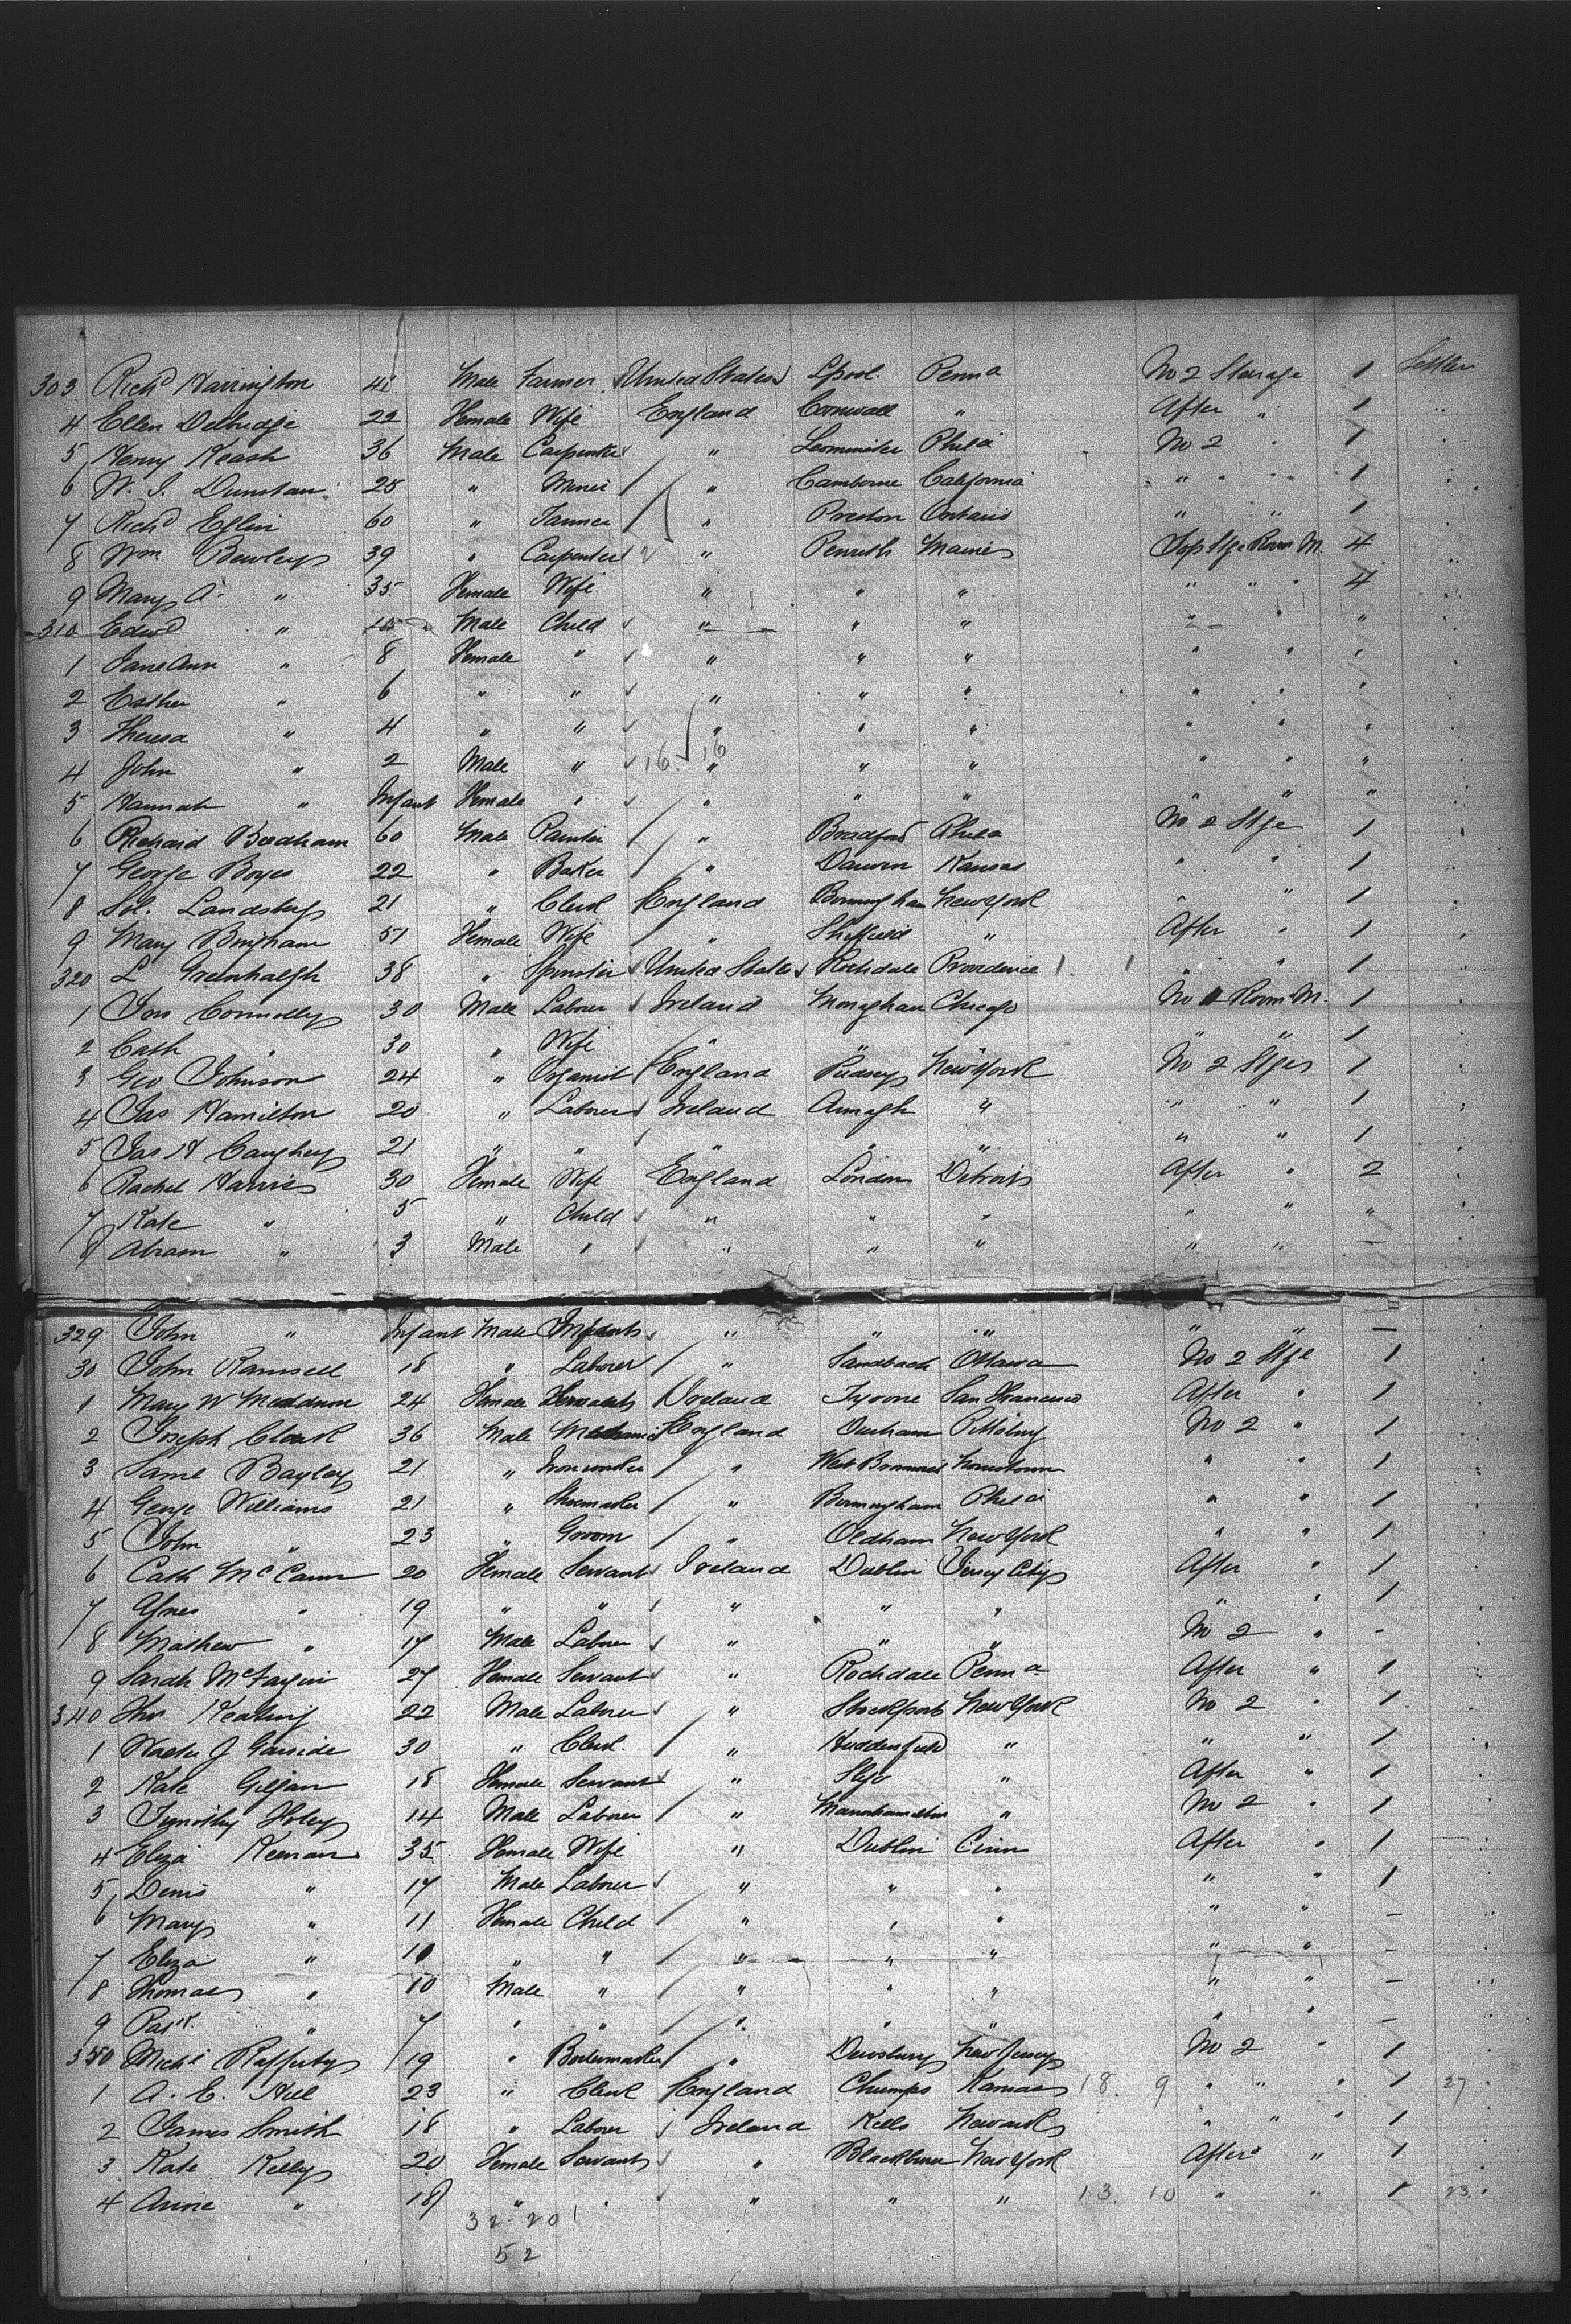 303 Richd Harrington 41 Male Farmer United States Lpool Penna No 2 Sterage 1 Settler
4 Ellen Delbridge 22 Female Wife England Cornwall " After " 1 "
5 Henry Keash 36 Male Carpenter " Leominster Phila No 2 " 1
6 W. J. Dunstan 25 " Miner " Camborne California " " 1
7 Richd Eglin 60 " Farmer " Preston Ontario " " 1
8 Wm Bewley 39 " Carpenter " Penrith Maine Top Stge Room M. 4
9 Mary A. " 35 Female Wife " " " " " " 4
310 Edwd " Male Child " " " " " "
1 Jane Ann " 8 Female " " " " " " "
2 Esther " 6 " " " " " " " "
3 Theresa " 4 " " " " " " " "
4 John " 2 Male " 16 16 " " " " " "
5 Hannah " Infant Female " " " " " " "
6 Richard Beedham 60 Male Painter " Bradford Phila No 2 Stge 1
7 George Boyes 22 " Baker " Darwen Kansas " " 1
8 Sol. Landsberg 21 " Clerk England Birmingham New York " " 1
9 Mary Bingham 51 Female Wife " Sheffield " After " 1
320 L Greenhalgh 38 " Spinster United States Rochdale Providence 1 1 " " 1
1 Jos Connolly 30 Male Laborer Ireland Monaghan Chicago No 1 Room M. 1
2 Cath " 30 " Wife " " " " " 1
3 Geo Johnson 24 " Organist England Pudsey New York No 2 Stge 1
4 Jas Hamilton 20 " Laborer Ireland Armagh " " " 1
5 Jas H Caughey 21 " " " " " " " 1
6 Rachel Harris 30 Female Wife England London Detroit After " 2
7 Kate " 5 " Child " " " " " "
8 Abram " 3 Male " " " " " " —
329 John " Infant Male Infant " " " " " —
30 John Ramsell 18 " Laborer " Sandbach Ottawa No 2 Stge 1
1 Mary W 24 Female Servant Ireland Tyrone San Francisco After " 1
2 Joseph Clark 36 Male Mechanic England Durham Pittsburg No 2 " 1
3 Saml Bayley 21 " Ironworker " West Bromwich " " 1
4 George Williams 21 " Shoemaker " Birmingham Phila " " 1
5 John " 23 " Groom " Oldham New York " " 1
6 Cath McCann 20 Female Servant Ireland Dublin Jersey City After " 1
7 Agnes " 19 " " " " " " " 1
8 Mathew " 17 Male Laborer " " " No 2 " -
9 Sarah 27 Female Servant " Rochdale Penna After " 1
340 Thos Keating 22 Male Laborer " Stockport New York No 2 " 1
1 Walter J Garside 30 " Clerk " Huddersfield " " " 1
2 Kate Gilgan 18 Female Servant " Sligo " After " 1
3 Timothy Foley 14 Male Laborer " Manorhamilton " No 2 " 1
4 Eliza Keenan 35 Female Wife " Dublin Cinn After " 1
5 Denis " 17 Male Laborer " " " " " 1
6 Mary " 11 Female Child " " " " " —
7 Eliza " " " " " " " " —
8 Thomas " 10 Male " " " " " " —
9 Patk " 7 " " " " " " " —
350 Michl Rafferty 19 " Boilermaker " Dewsbury New Jersey No 2 " 1
1 A. E. Hill 23 " Clerk England Kansas 18. 9 " " " 1 27
2 James Smith 18 " Laborer Ireland Kells Newark " " " 1
3 Kate Kelly 20 Female Servant " Blackburn New York After " 1
4 Annie " 18 " " " " " 13. 10 " " 1 23
32 - 20
52